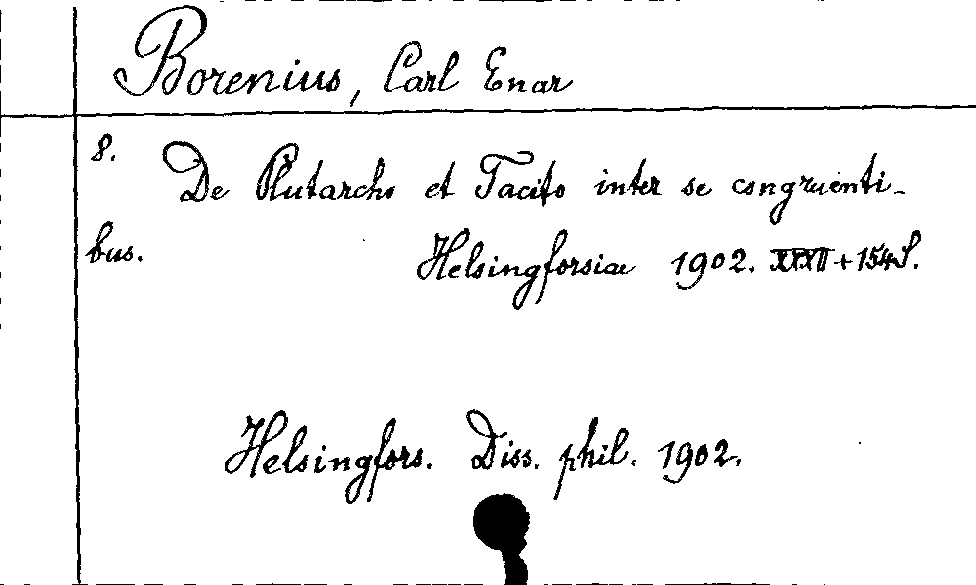 Borenius, Carl Enar
8.
De Plutarcho et Tacito inter se congruenti-
bus.
Helsingforsiae 1902. XXXII + 154 S.
Helsingfors. Diss. phil. 1902.